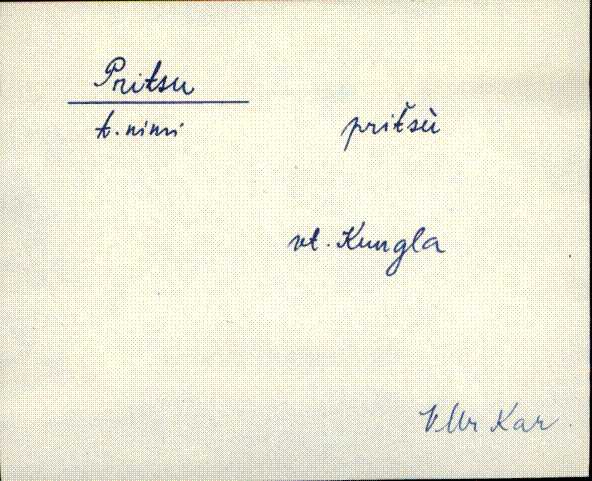 Pritsu
t. nimi
pritšù
vt. Kungla
VMr Kar